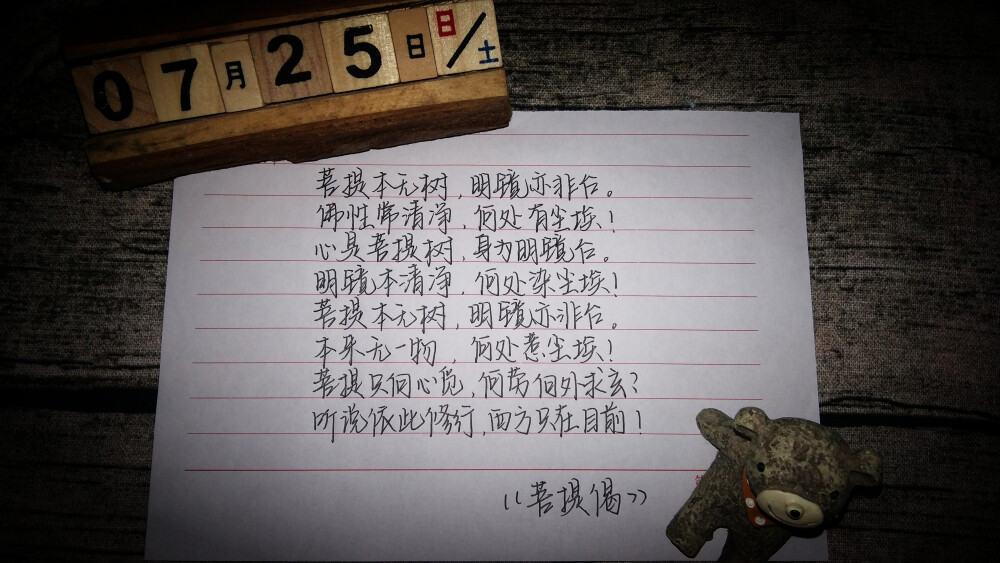 07月25日 日/土
菩提本无树,明镜亦非台。
佛性常清净,何处有尘埃!
心是菩提树,身为明镜台。
明镜本清净,何处染尘埃!
菩提本无树,明镜亦非台。
本来无一物,何处惹尘埃!
菩提只向心觅,何劳向外求玄?
听说依此修行,西方只在目前!
《菩提偈》